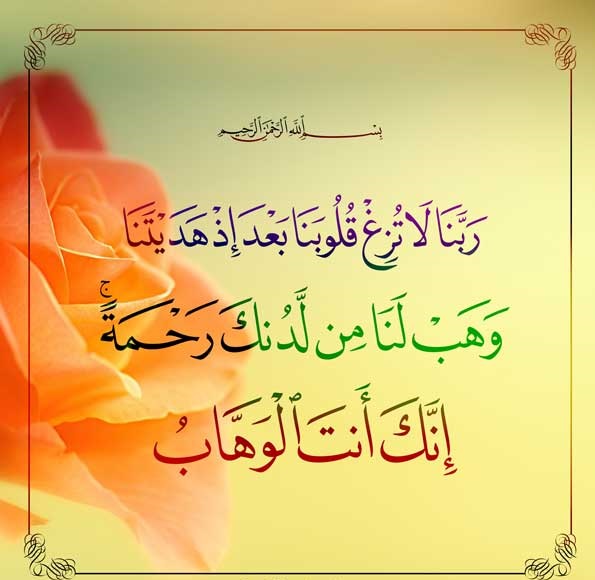 بِسْمِ ٱللَّهِ ٱلرَّحْمَٰنِ ٱلرَّحِيمِ
رَبَّنَا لَا تُزِغْ قُلُوبَنَا بَعْدَ إِذْ هَدَيْتَنَا
وَهَبْ لَنَا مِن لَّدُنكَ رَحْمَةً ۚ
إِنَّكَ أَنتَ ٱلْوَهَّابُ